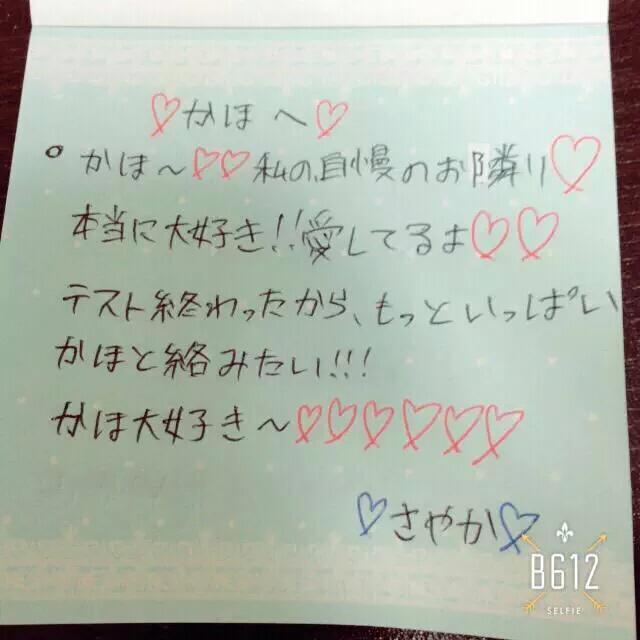 ♡かほへ♡
○かほ〜♡♡私の自慢のお隣り♡
本当に大好き!!愛してるよ♡♡
テスト終わったから、もっといっぱい
かほと絡みたい!!!
かほ大好き〜♡♡♡♡♡♡
♡さやか♡
B612
SELFIE